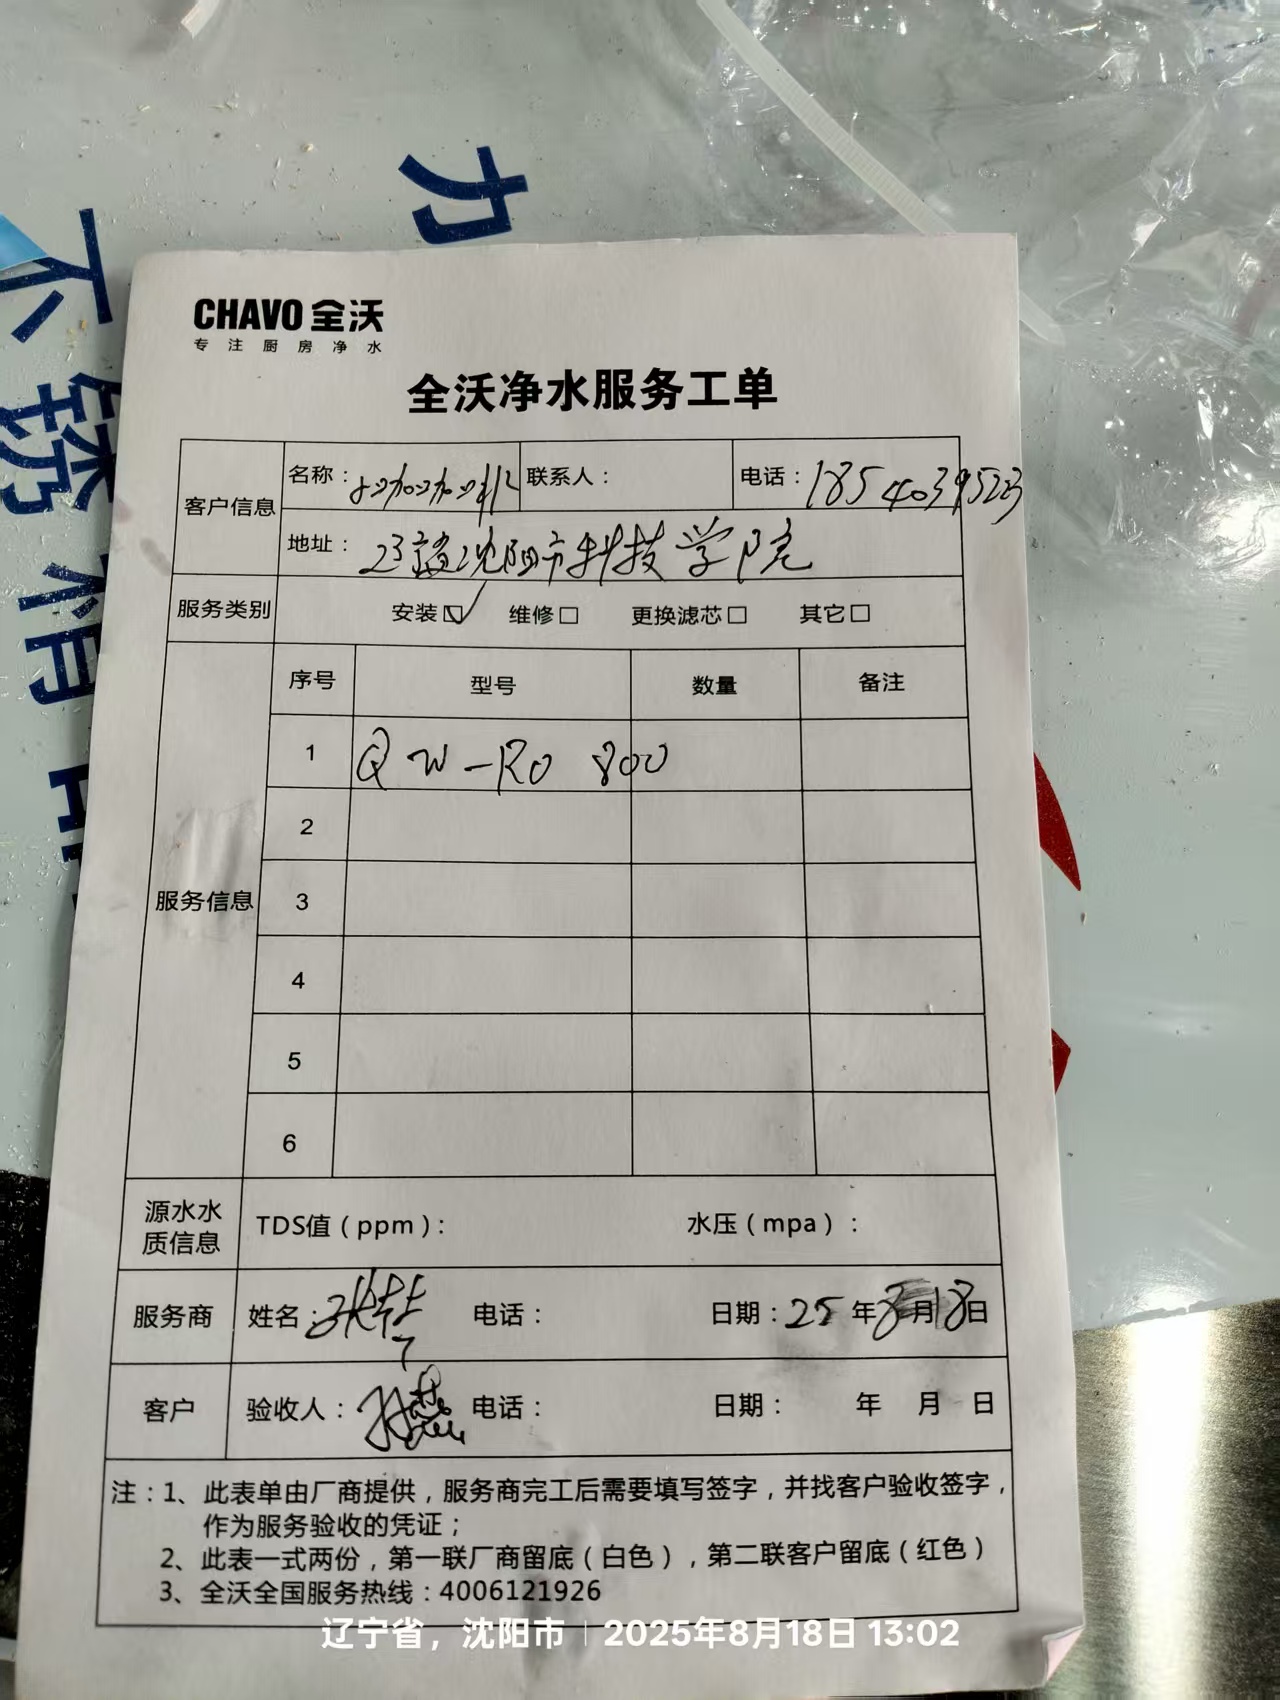 力
不锈精
CHAVO 全沃
专注厨房净水
全沃净水服务工单
客户信息
名称：
联系人：
电话：1854039523
地址：辽沈阳市科技学院
服务类别 安装☑ 维修□ 更换滤芯□ 其它□
服务信息
序号 型号 数量 备注
1 QW-RO 800
2
3
4
5
6
源水水质信息 TDS值（ppm）： 水压（mpa）：
服务商 姓名：张 电话： 日期：25年8月18日
客户 验收人： 电话： 日期： 年 月 日
注：1、此表单由厂商提供，服务商完工后需要填写签字，并找客户验收签字，
作为服务验收的凭证；
2、此表一式两份，第一联厂商留底（白色），第二联客户留底（红色）
3、全沃全国服务热线：4006121926
辽宁省，沈阳市 | 2025年8月18日 13:02